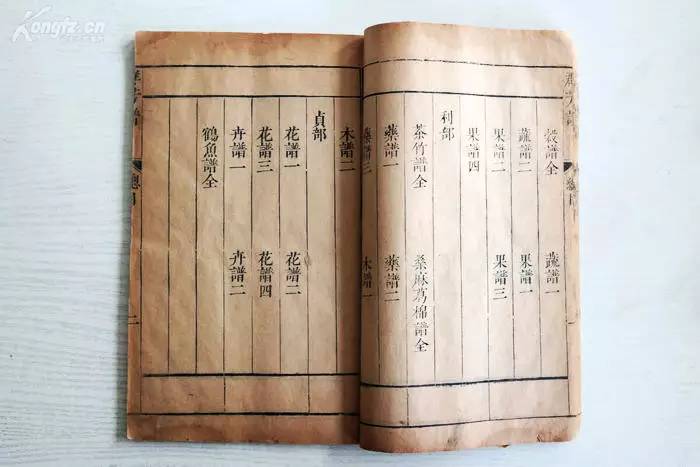 Kongfz.cn
總目
一
穀譜全 蔬譜一
蔬譜二 果譜一
果譜二 果譜三
果譜四
利部
茶竹譜全 桑麻葛棉譜全
藥譜一 藥譜二
藥譜三 木譜一
木譜二
貞部
花譜一 花譜二
花譜三 花譜四
卉譜一 卉譜二
鶴魚譜全
羣芳譜
總目
二